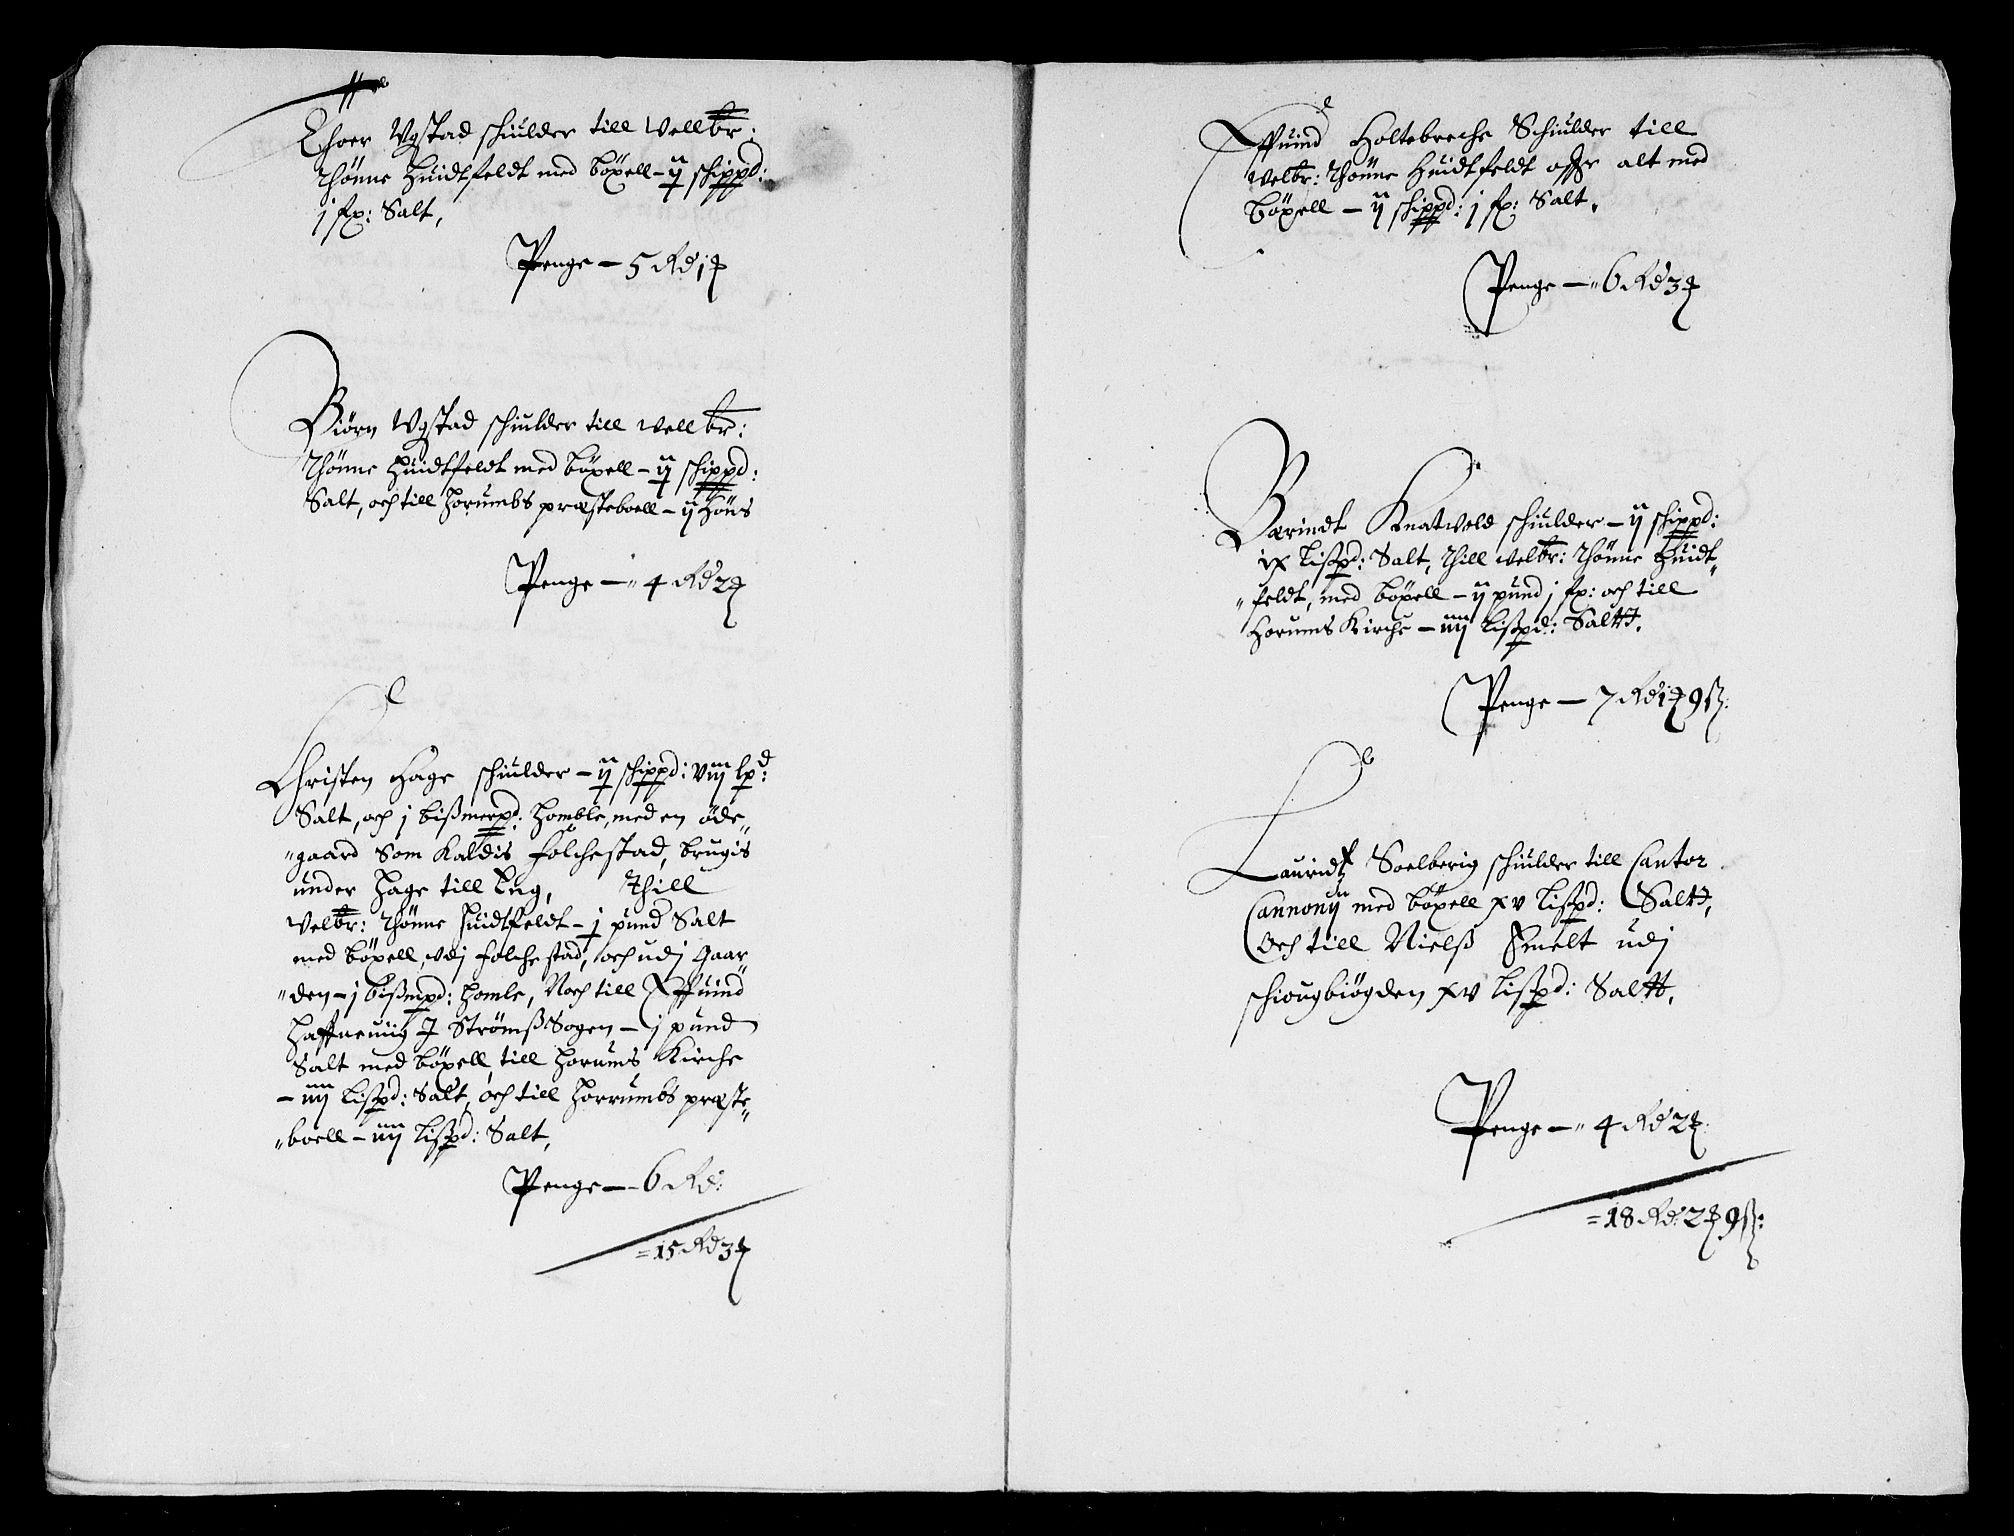 Thoer Wgstad schiulder till Wellbr:
Thönne Huidtfeldt med böxell - ij schippd:
j fx: Salt,
Penge - 5 Rd 1 ƶ
Biörn Wgstad schiulder till Wellbr:
Thönne Huidtfeldt med böxell - ij schippd:
Salt, och till Horumbs præsteboell - ij Höns
Penge - 4 Rd 2 ƶ
Christen Hage schiulder - ij schippd: viij lpd:
Salt, och j bißmerpd: Homble, med en öde„
„gaard Som Kaldis Folchestad, brugis
under Hage till Eng, Thill
Velbr: Thönne Huidtfeldt - j pund Salt
med böxell, vdj Folchestad, och udj Gaar„
„den - j bißmpd: Homle, Noch till Effuind
Haffneuiig J StrömßSogen - j pund
Salt med böxell, till Horums Kirche
- iiij lißpd: Salt, och till Horrumbs præste„
„boell - iiij lißpd: Salt,
Penge - 6 Rd:
= 15 Rd 3 ƶ
Effuind Holtebreche Schiulder till
velbr: Thönne Huidtfeldt offr alt med
böxell - ij schippd: j fx: Salt,
Penge - 6 Rd 3 ƶ
Barindt Knatvold schiulder - ij schippd:
ix lißpd: Salt, Thill velbr: Thönne Huidt„
„feldt, med böxell - ij pund j fx: och till
Horums Kirche - iiij lißpd: Saltt.
Penge - 7 Rd 1 ƶ 9 ß:
Lauridtz Soelberig schiulder till Cantor
Cannonij med böxell xv lißpd: Saltt,
Och till Nielß Smelt udj
schiougbiögden xv lißpd: Saltt.
Penge - 4 Rd 2 ƶ:
= 18 Rd: 2 ƶ 9 ß: